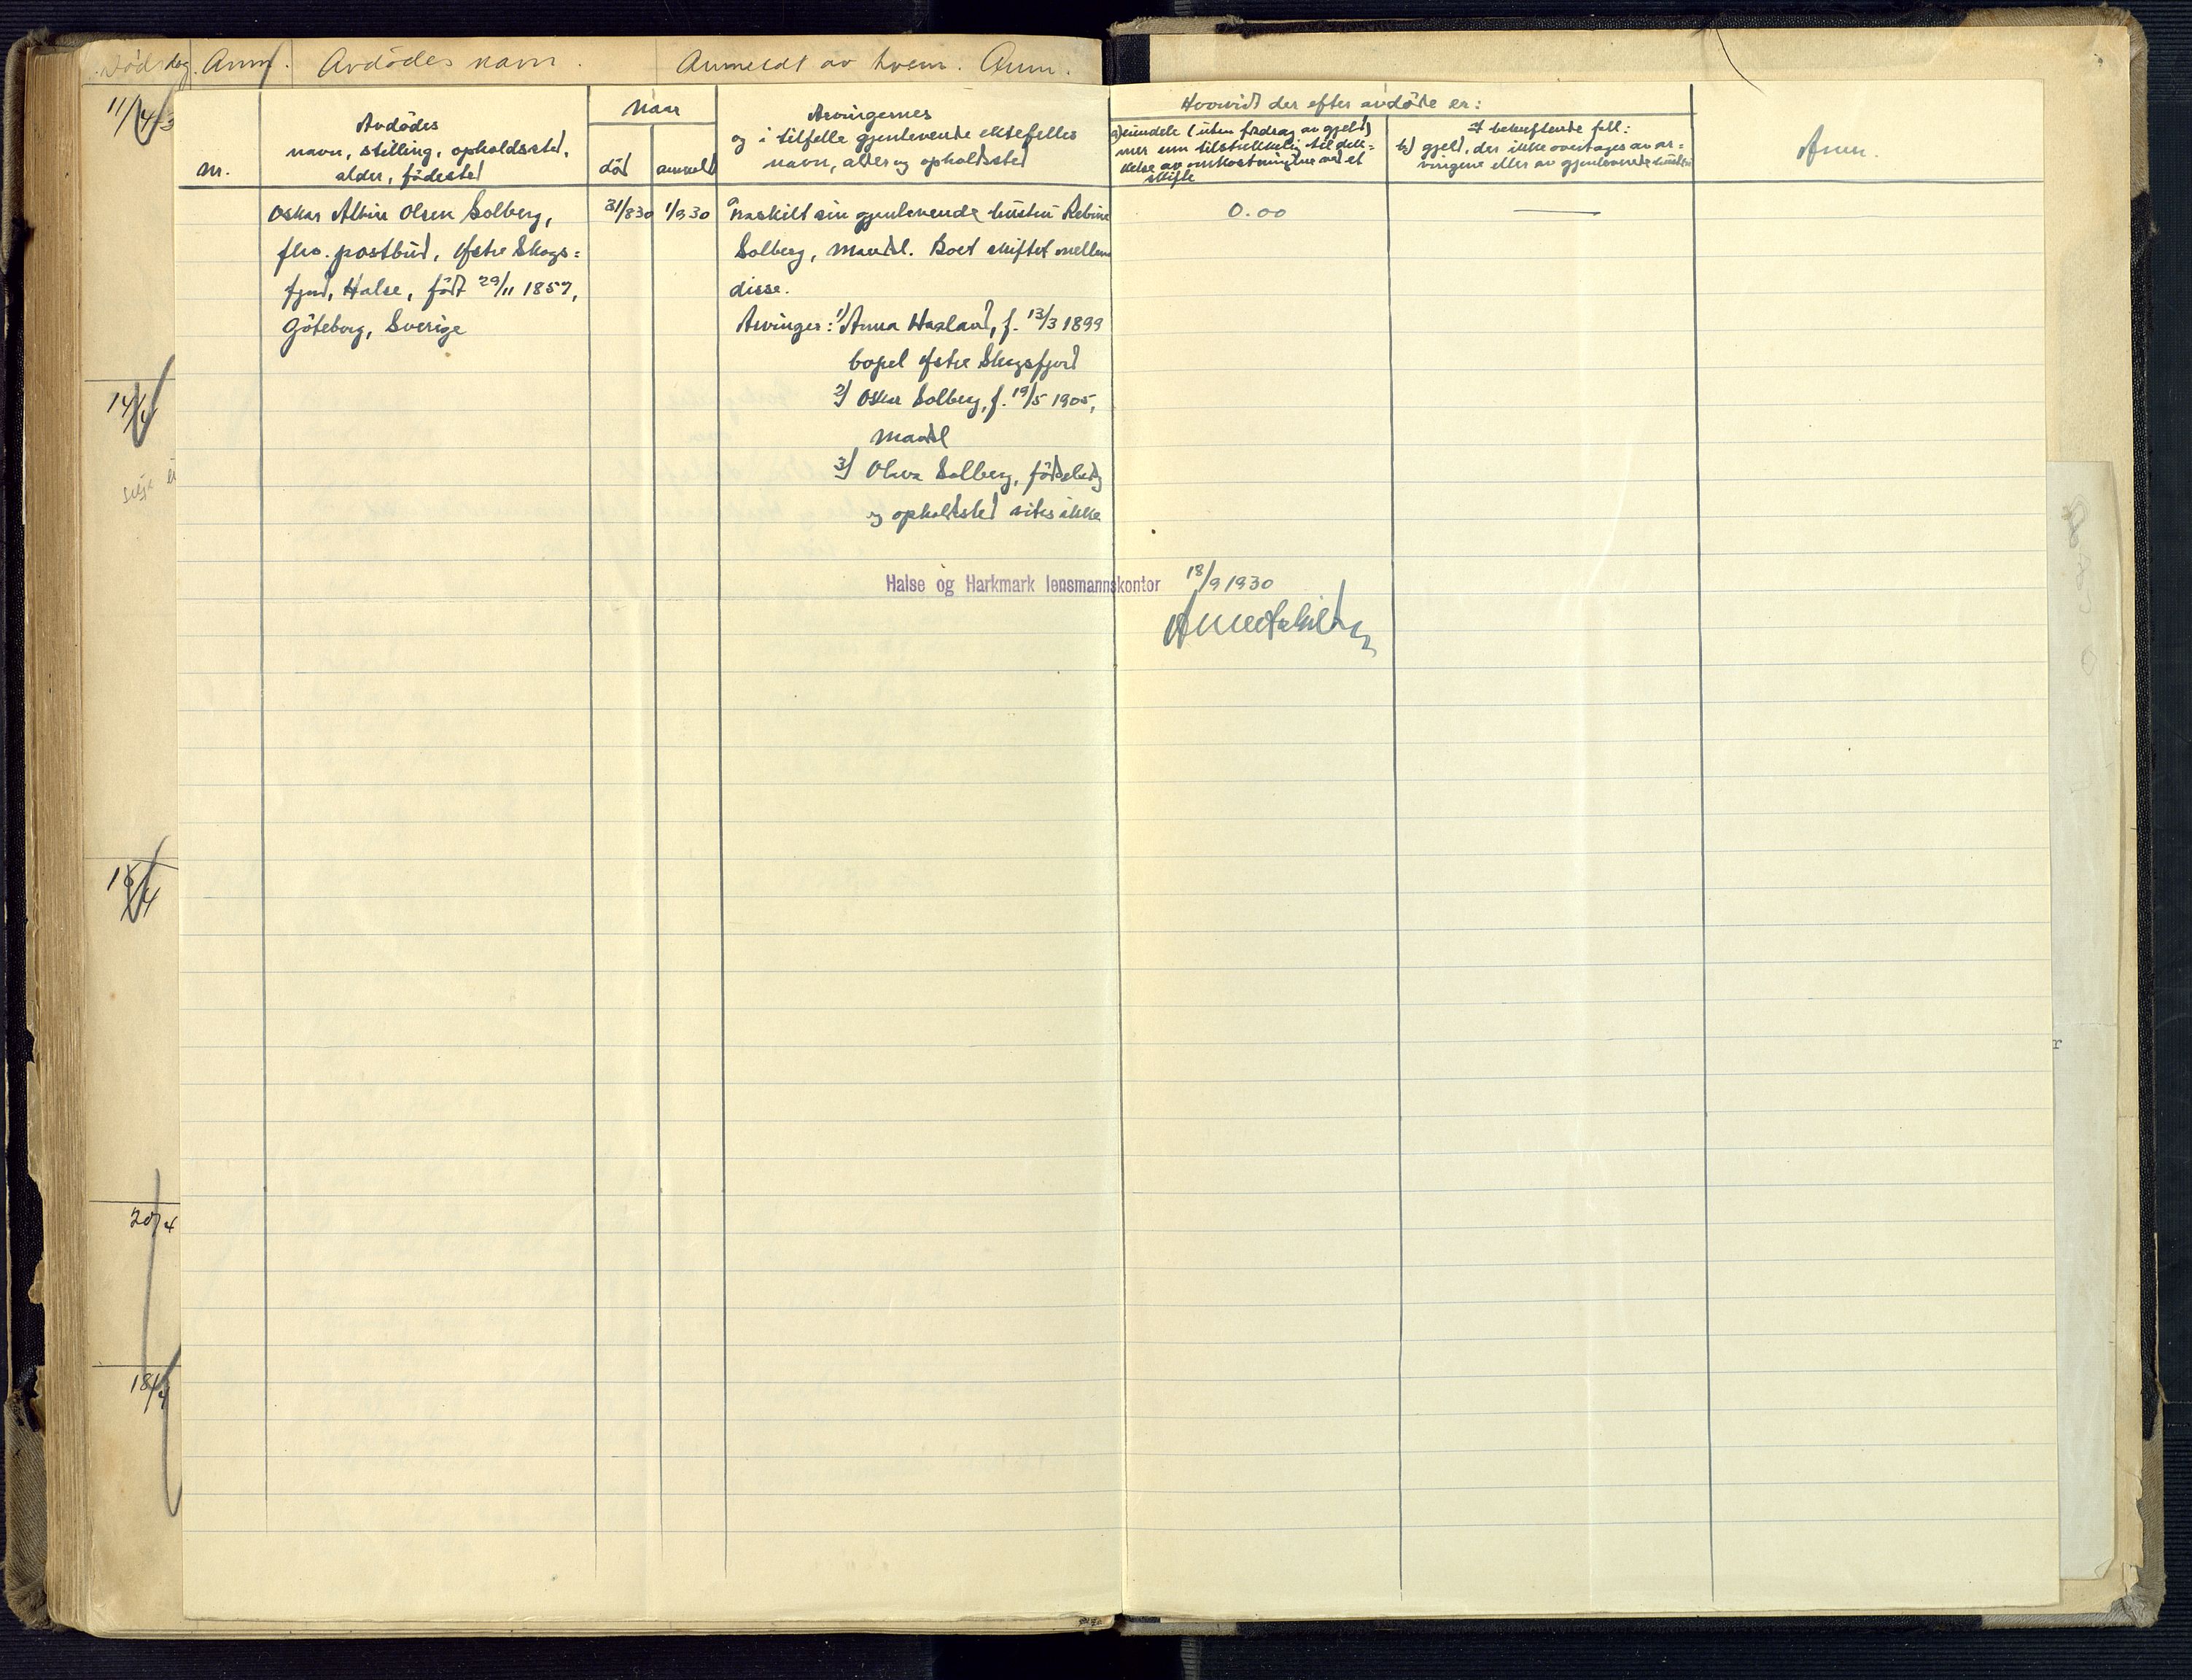 Dødsdag. Anm. Avdödes navn. Anmeldt av hvem. Anm.
11/4 43
14/4
20/4
18/4
Nr.
Avdödes
navn, stilling, opholdssted,
alder, födested
Naar
död
anmeldt
Arvingernes
og i tilfelle gjenlevende ektefelles
navn, alder og opholdssted
Hvorvidt der efter avdöde er:
a) eiendele (uten fradrag av gjeld)
mer enn tilstrekkelig til dek=
kelse av omkostningene ved et
skifte
I bekreftende fall:
b) gjeld, der ikke overtages av ar=
vingene eller av gjenlevende hustru
Anm.
Oskar Albin Olsen Solberg,
fhv. postbud, Östre Skogs=
fjord, Halse, födt 29/11 1857,
Göteborg, Sverige
31/8 30
1/9 30
Fraskilt sin gjenlevende hustru Rebine
Solberg, Mandal. Boet skiftet mellem
disse.
Arvinger: 1) Anna Haaland, f. 13/3 1899
bopel Östre Skogsfjord
2) Oskar Solberg, f. 19/5 1905,
Mandal
3) Olava Solberg, födselsdag
og opholdssted vites ikke
0.00
Halse og Harkmark lensmannskontor 18/9 1930